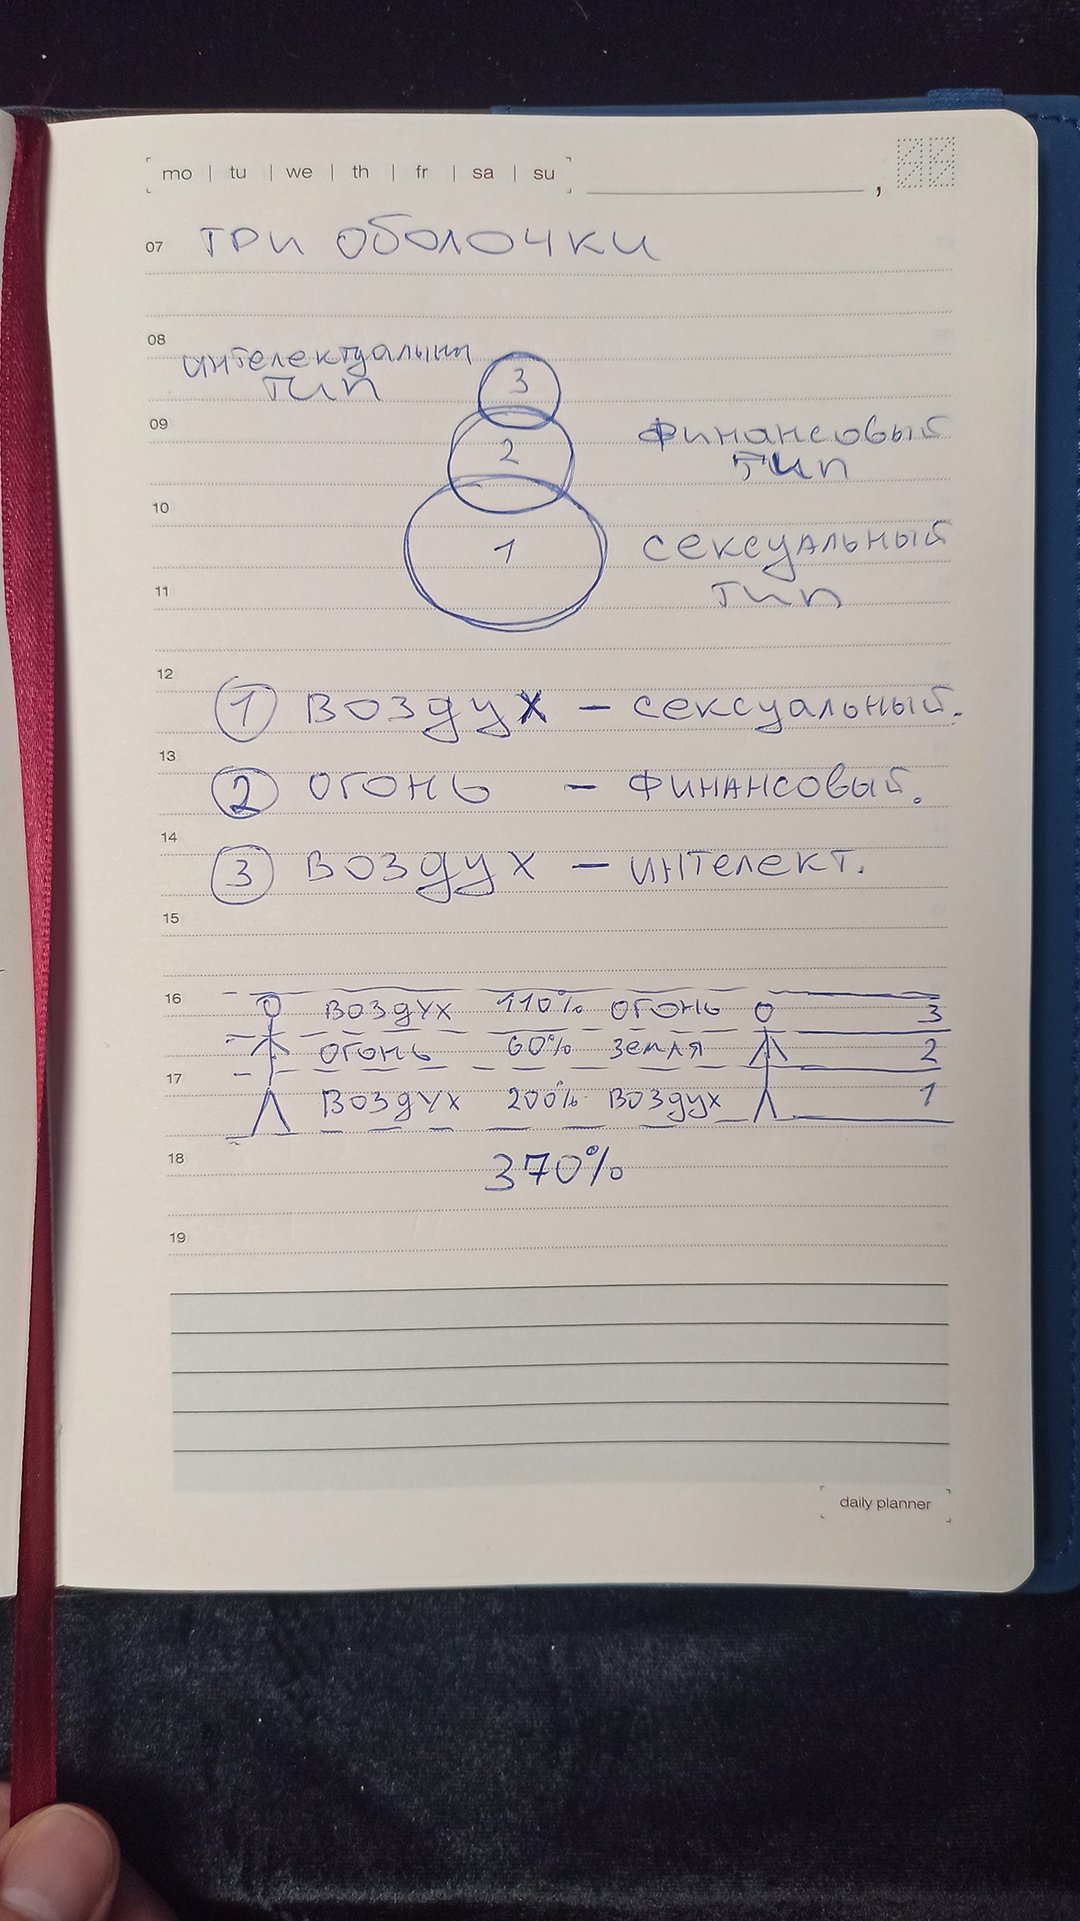 mo | tu | we | th | fr | sa | su ,
07 ТРИ ОБОЛОЧКИ
08
интелектуальный
тип
3
09
2
финансовый
тип
10
1
сексуальный
11
тип
12
1 ВОЗДУХ – сексуальный.
13
2 ОГОНЬ – ФИНАНСОВЫЙ.
14
3 ВОЗДУХ – ИНТЕЛЕКТ.
15
16
ВОЗДУХ 110% ОГОНЬ 3
ОГОНЬ 60% ЗЕМЛЯ 2
17
ВОЗДУХ 200% ВОЗДУХ 1
18
370%
19
daily planner